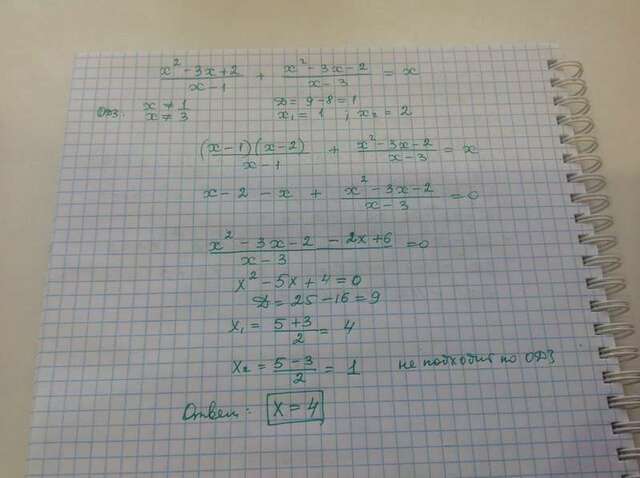 (x² - 3x + 2)/(x - 1) + (x² - 3x - 2)/(x - 3) = x
ОДЗ: x ≠ 1 Д = 9 - 8 = 1
x ≠ 3 x₁ = 1 ; x₂ = 2
((x - 1)(x - 2))/(x - 1) + (x² - 3x - 2)/(x - 3) = x
x - 2 - x + (x² - 3x - 2)/(x - 3) = 0
(x² - 3x - 2 - 2x + 6)/(x - 3) = 0
x² - 5x + 4 = 0
Д = 25 - 16 = 9
x₁ = (5 + 3)/2 = 4
x₂ = (5 - 3)/2 = 1 не подходит по ОДЗ
Ответ: x = 4